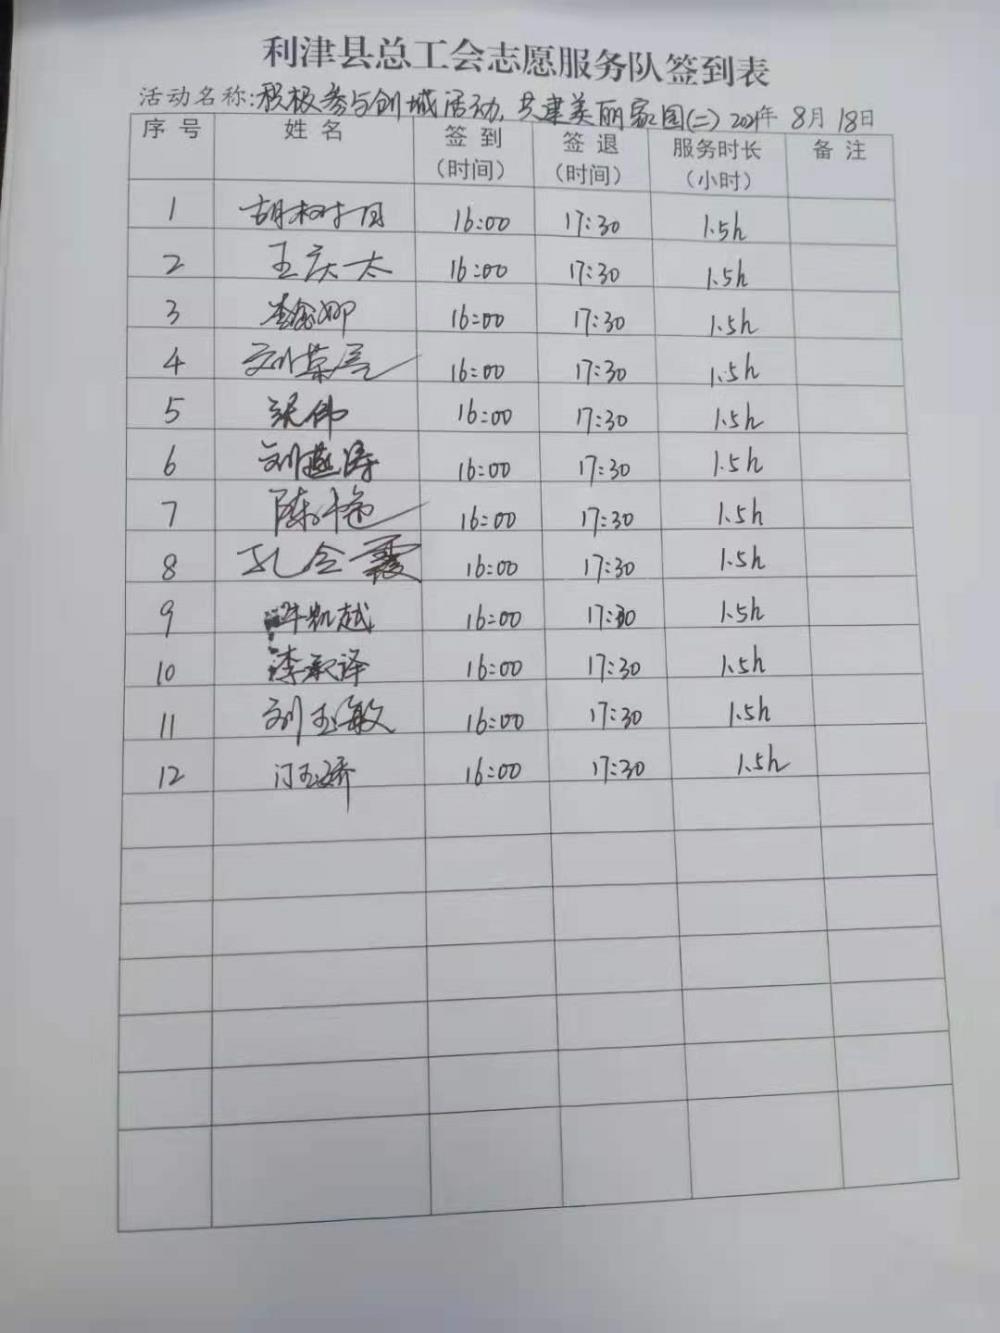 利津县总工会志愿服务队签到表
活动名称:积极参与创城活动,共建美丽家园(二) 2021年 8月 18日
序号 姓名 签到(时间) 签退(时间) 服务时长(小时) 备注
1 胡树国 16:00 17:30 1.5h
2 王庆太 16:00 17:30 1.5h
3 李鑫娜 16:00 17:30 1.5h
4 刘荣 16:00 17:30 1.5h
5 张伟 16:00 17:30 1.5h
6 刘燕涛 16:00 17:30 1.5h
7 陈艳 16:00 17:30 1.5h
8 孔令霞 16:00 17:30 1.5h
9 牛凯越 16:00 17:30 1.5h
10 李承泽 16:00 17:30 1.5h
11 刘玉敏 16:00 17:30 1.5h
12 门玉娇 16:00 17:30 1.5h